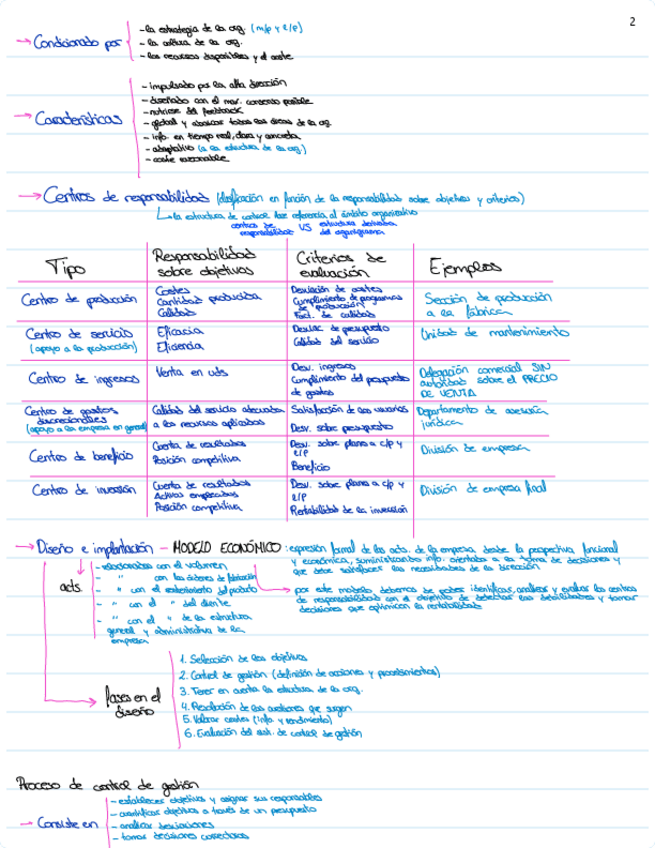 2
→ Condicionado por
- la estrategia de la org. (m/p y l/p)
- la cultura de la org.
- los recursos disponibles y el coste
→ Características
- impulsado por la alta dirección
- diseñado con el max. consenso posible
- nutrirse del feedback
- global y abarcar todas las áreas de la org
- info. en tiempo real, clara y concreta
- adaptativo (a la estructura de la org.)
- coste razonable
→ Centros de responsabilidad (clasificación en función de la responsabilidad sobre objetivos y criterios)
la estructura de control hace referencia al ámbito organizativo
centros de responsabilidad VS estructura derivada del organigrama
Tipo | Responsabilidad sobre objetivos | Criterios de evaluación | Ejemplos
Centro de producción | Costes Cantidad producida Calidad | Desviación de costes Cumplimiento de programas de producción Fact. de calidad | Sección de producción a la fábrica
Centro de servicio (apoyo a la producción) | Eficacia Eficiencia | Desviac de presupuesto Calidad del servicio | Unidad de mantenimiento
Centro de ingresos | Venta en uds | Desv. ingresos Cumplimiento del presupuesto de gastos | Delegación comercial SIN autoridad sobre el PRECIO DE VENTA
Centro de gastos discrecionales (apoyo a la empresa en general) | Calidad del servicio adecuada a los recursos aplicados | Satisfacción de los usuarios Desv. sobre presupuesto | Departamento de asesoría jurídica
Centro de beneficio | Cuenta de resultados Posición competitiva | Desv. sobre planes a c/p y l/p Beneficio | División de empresa
Centro de inversión | Cuenta de resultados Activos empleados Posición competitiva | Desv. sobre planes a c/p y l/p Rentabilidad de la inversión | División de empresa final
→ Diseño e implantación - MODELO ECONÓMICO: expresión formal de las acts. de la empresa desde la perspectiva funcional
y económica, suministrando info. orientada a la toma de decisiones y
que debe satisfacer las necesidades de la dirección
→ por este modelo, debemos de poder identificar, analizar y evaluar los centros
de responsabilidad con el objetivo de detectar las debilidades y tomar
decisiones que optimicen la rentabilidad
acts.
- relacionadas con el volumen
- " con las órdenes de fabricación
- " con el sostenimiento del producto
- " con el " del cliente
- " con el " de la estructura
general y administrativa de la
empresa
fases en el diseño
1. Selección de los objetivos
2. Control de gestión (definición de acciones y procedimientos)
3. Tener en cuenta la estructura de la org.
4. Resolución de las cuestiones que surgen
5. Valorar costes (info. y rendimiento)
6. Evaluación del sist. de control de gestión
Proceso de control de gestión
→ Consiste en
- establecer objetivos y asignar sus responsables
- cuantificar objetivos a través de un presupuesto
- analizar desviaciones
- tomar decisiones correctoras